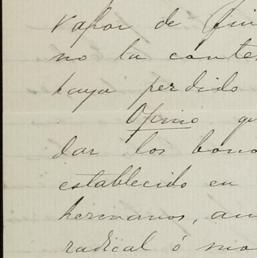 vapor de fin
no la conte
haya perdido
Opino qu
dar los bono
establecido en
hermanos, am
radical ó mo